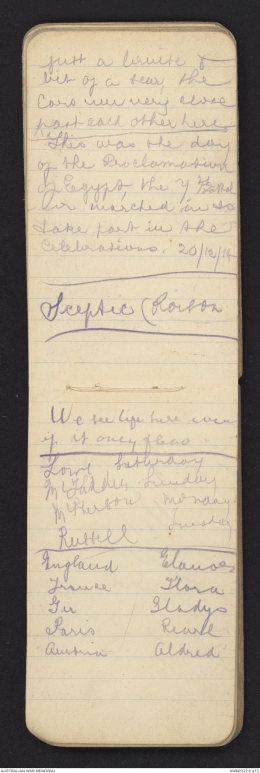 just a bruise &
bit of a tear, the
Cars run very close
past each other here
This was the day
of the Proclamation
of Egypt the 7th Battal
ion marched in to
take part in the
Celebrations. 20/12/14
Sceptic (Poison
We see life here even
if it only fleas
Lowe Saturday
McFadden Sunday
McPherson Monday
Russell Tuesday
England
France Flora
Ger Gladys
Paris Pearl
Austria Aldred
AUSTRALIAN WAR MEMORIAL